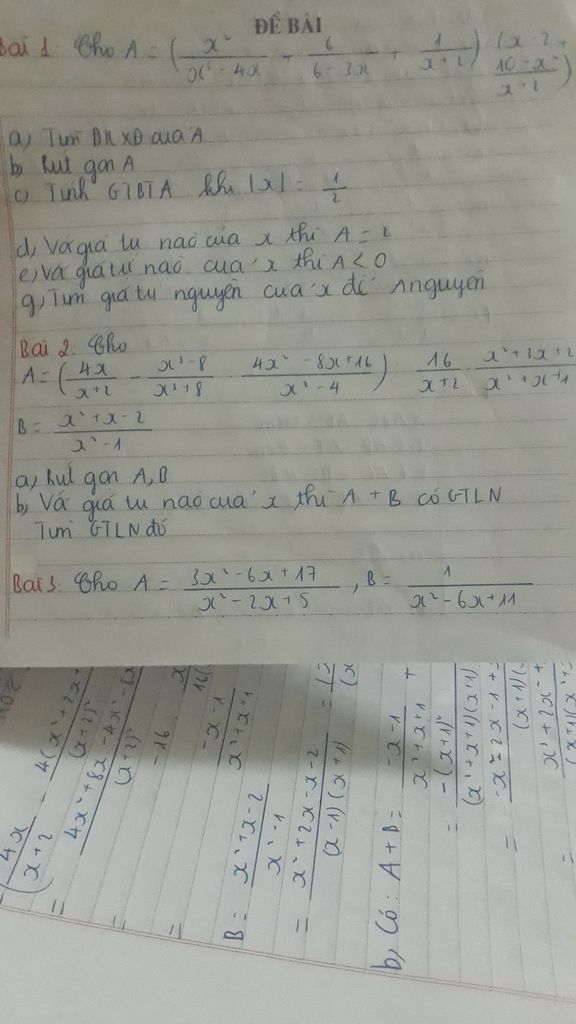 ĐỀ BÀI
Bài 1: Cho A = (x²/(x² - 4x) + 6/(6 - 3x) + 1/(x+2)) (x - 2 + (10 - x²)/(x+2))
a, Tìm ĐKXĐ của A
b, Rút gọn A
c, Tính GTBT A khi |x| = 1/2
d, Với giá trị nào của x thì A = 2
e, Với giá trị nào của x thì A < 0
g, Tìm giá trị nguyên của x để A nguyên
Bài 2: Cho
A = (4x/(x+2) - (x³-8)/(x³+8) . (4x² - 8x + 16)/(x² - 4)) 16/(x+2) . (x² + 3x + 2)/(x² + x + 1)
B = (x² + x - 2)/(x² - 1)
a, Rút gọn A, B
b, Với giá trị nào của x thì A + B có GTLN
Tìm GTLN đó
Bài 3: Cho A = (3x² - 6x + 17)/(x² - 2x + 5), B = 1/(x² - 6x + 11)
4x/(x+2) - 4(x² + 2x
(x+2)²
= 4x² + 8x - 4x² - 8x
(x+2)²
= -16
16
= -x - 1
x² + x + 1
B = (x² + x - 2)/(x² - 1)
= (x² + 2x - x - 2)/((x-1)(x+1)) =
b, Có: A + B = (-x - 1)/(x² + x + 1) +
= -(x+1)²
(x² + x + 1)(x+1)
= -x² - 2x - 1 +
(x+1)(
= x² + 2x² +
(x+1)(x
=